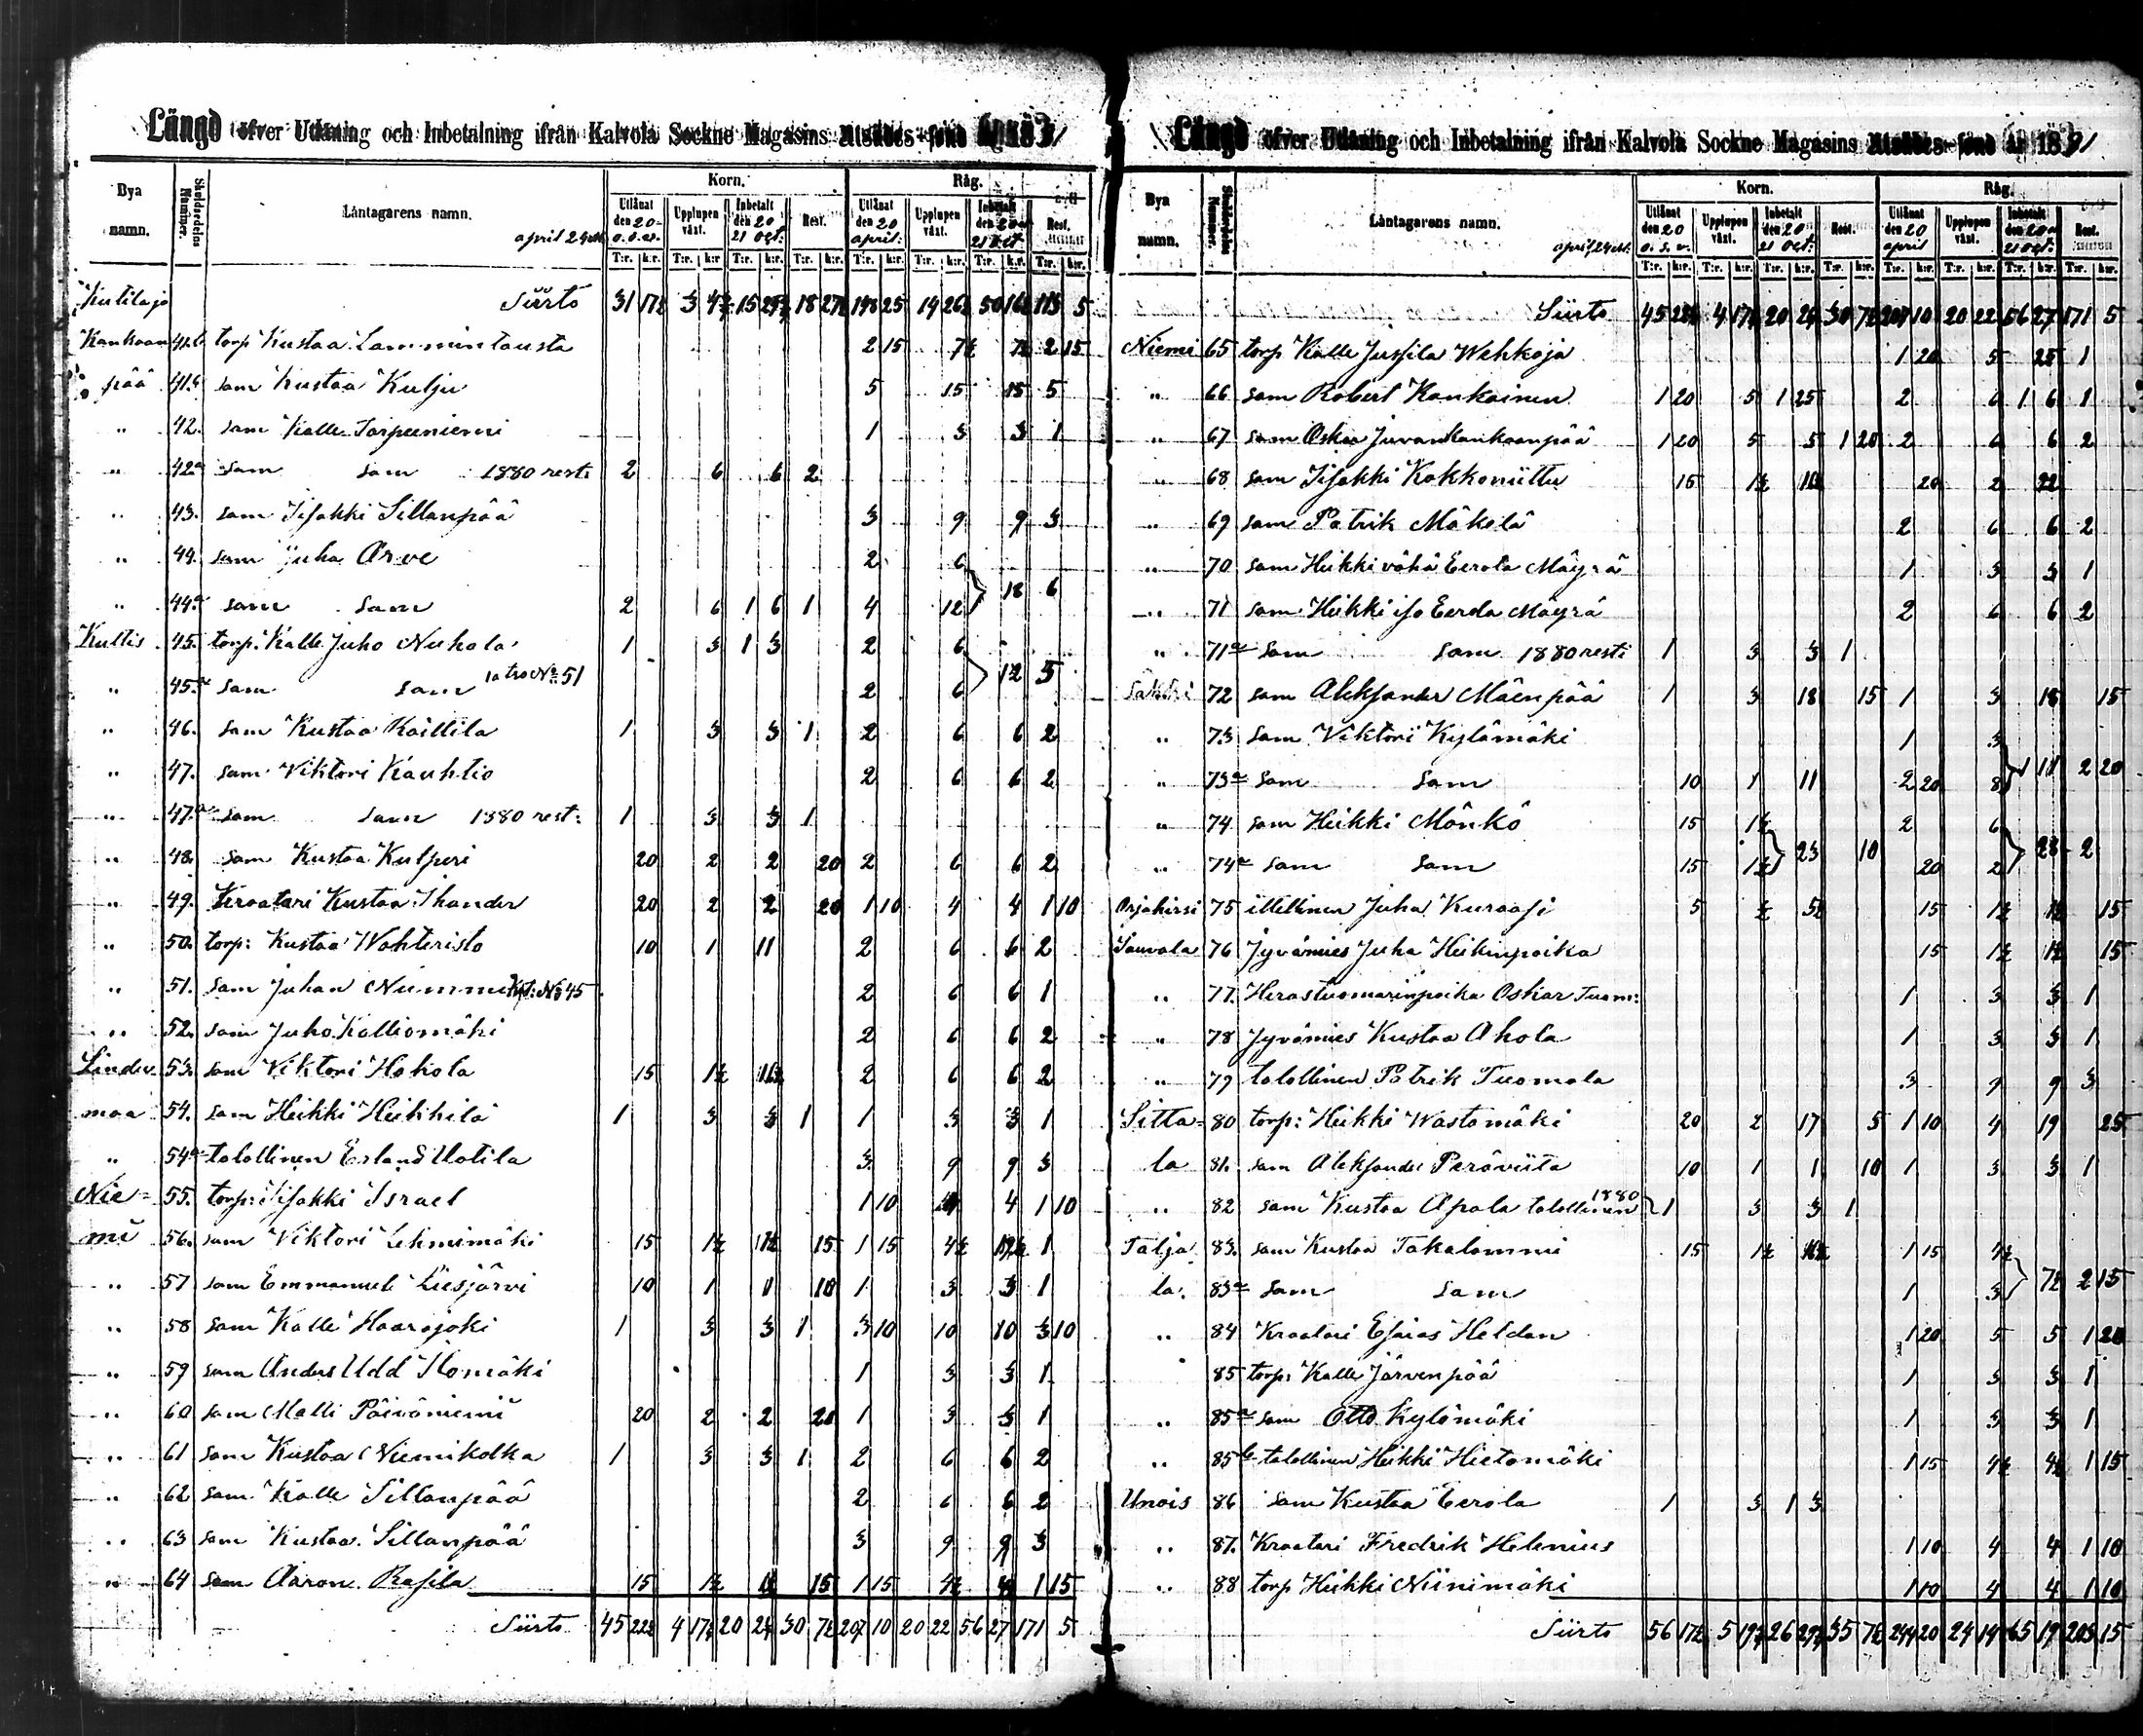 Längd öfver Utlåning och Inbetalning ifrån Kalvola Sockne Magasins Utsädes-fond år 18
Bya namn. Skuldsedelns Nummer. Låntagarens namn. Korn. Råg.
april 24
Utlånat den 20 Upplupen växt. Inbetalt den 20 21 Oct: Rest. Utlånat den 20 april: Upplupen växt. Inbetalt 21 Oct. Rest.
T:r. k:r. T:r. k:r. T:r. k:r. T:r. k:r. T:r. k:r. T:r. k:r. T:r. k:r. T:r. k:r.
Siirto 31 17½ 3 15 18 27½ 148 25 14 26½ 50 113 5
Kankaan 41 torp Kustaa Lammintausta 2 15 7½ 7½ 2 15
pää 41 sam Kustaa Kulju 5 15 15 5
" 42. sam Kalle Tarpeeniemi 1 3 3 1
" 42a sam sam 1880 rest: 2 6 6 2
" 43. sam Iisakki Sillanpää 3 9 9 3
" 44. sam Juha Arve 2 6
" 44a sam sam 2 6 1 6 1 4 12 18 6
Kultis 45. torp. Kalle Juho Nuhola 1 3 1 3 2 6
" 45a sam sam No 51 2 6 12 5
" 46. sam Kustaa Kaittila 1 3 3 1 2 6 6 2
" 47. sam Viktori Kauhtio 2 6 6 2
" 47a sam sam 1880 rest: 1 3 3 1
" 48. sam Kustaa Kulperi 20 2 2 20 2 6 6 2
" 49. Kraatari Kustaa Thander 20 2 2 20 1 10 4 4 1 10
" 50. torp: Kustaa Wahteristo 10 1 11 2 6 6 2
" 51. sam Juhan Niemmi No 45 2 6 6 1
" 52. sam Juho Kalliomäki 2 6 6 2
Linden 53. sam Viktori Hakola 15 1½ 16½ 2 6 6 2
maa 54. sam Heikki Heikkilä 1 3 3 1 1 3 3 1
" 54a talollinen Erland Uotila 3 9 9 3
Nie= 55. torp: Iisakki Israel 1 10 4 4 1 10
mi 56. sam Viktori Lehmimäki 15 1½ 1½ 15 1 15 4½ 19½ 1
" 57 sam Emmanuel Liesjärvi 10 1 1 10 1 3 3 1
" 58 sam Kalle Haarajoki 1 3 3 1 3 10 10 10 3 10
" 59 sam Anders Udd Ilomäki 1 3 3 1
" 60 sam Matti Päiväniemi 20 2 2 20 1 3 3 1
" 61 sam Kustaa Niemikolka 1 3 3 1 2 6 6 2
" 62 sam Kalle Sillanpää 2 6 6 2
" 63 sam Kustaa Sillanpää 3 9 9 3
" 64 sam Aaron Rasila 15 1½ 1½ 15 1 15 4½ 4½ 1 15
Siirto 45 22½ 4 20 30 7½ 207 10 20 22 56 27 171 5
Längd öfver Utlåning och Inbetalning ifrån Kalvola Sockne Magasins Utsädes-fond år 1881
Bya namn. Låntagarens namn. Korn. Råg.
april 24
Utlånat den 20 Upplupen växt. Inbetalt den 20 21 Oct: Rest. Utlånat den 20 april Upplupen växt. Inbetalt 21 Oct: Rest.
T:r. k:r. T:r. k:r. T:r. k:r. T:r. k:r. T:r. k:r. T:r. k:r. T:r. k:r. T:r. k:r.
Siirto 45 22½ 4 20 30 7½ 207 10 20 22 56 27 171 5
Niemi 65 torp Kalle Jussila Wehkoja 1 20 5 25 1
" 66 sam Robert Kankainen 1 20 5 1 25 2 6 1 6 1
" 67 sam Oskar Juvankankaanpää 1 20 5 5 1 20 2 6 6 2
" 68 sam Iisakki Kokkoniittu 15 1½ 16½ 20 2 22
" 69 sam Patrik Mäkelä 2 6 6 2
" 70 sam Heikki vähä Eerola Mäyrä 1 3 3 1
" 71 sam Heikki iso Eerola Mäyrä 2 6 6 2
" 71a sam sam 1880 resti 1 3 3 1
72 sam Aleksander Mäenpää 1 3 18 15 1 3 18 15
" 73 sam Viktori Kylämäki 1 3
" 73a sam sam 10 1 11 2 20 8 11 2 20
" 74 sam Heikki Mönkö 15 1½ 2 6
" 74a sam sam 15 1½ 23 10 20 2 28 2
Orjahirsi 75 itellinen Juha Kuraasi 5 ½ 5½ 15 1½ 1½ 15
Sauvala 76 Jyvämies Juha Heikinpoika 15 1½ 1½ 15
" 77. Herastuomarinpoika Oskar Tuom: 1 3 3 1
" 78 Jyvämies Kustaa Ahola 1 3 3 1
" 79 talollinen Patrik Tuomala 3 9 9 3
Sitta= 80 torp: Heikki Wastamäki 20 2 17 5 1 10 4 19 25
la 81. sam Aleksander Peräviita 10 1 1 10 1 3 3 1
" 82 sam Kustaa Apala talollinen 1880 1 3 3 1
Talja 83. sam Kustaa Takalammi 15 1½ 16½ 1 15 4½
la: 83a sam sam 1 3 7½ 2 15
" 84 Kraatari Esaias Heldan 1 20 5 5 1 20
85 torp: Kalle Järvenpää 1 3 3 1
" 85a sam Otto Kylämäki 1 3 3 1
" 85b talollinen Heikki Hietamäki 1 15 4½ 4½ 1 15
Unois 86 sam Kustaa Eerola 1 3 1 3
" 87. Kraatari Fredrik Helenius 1 10 4 4 1 10
" 88 torp Heikki Niinimäki 1 10 4 4 1 10
Siirto 56 17½ 5 26 35 7½ 244 20 24 14 65 19 203 15